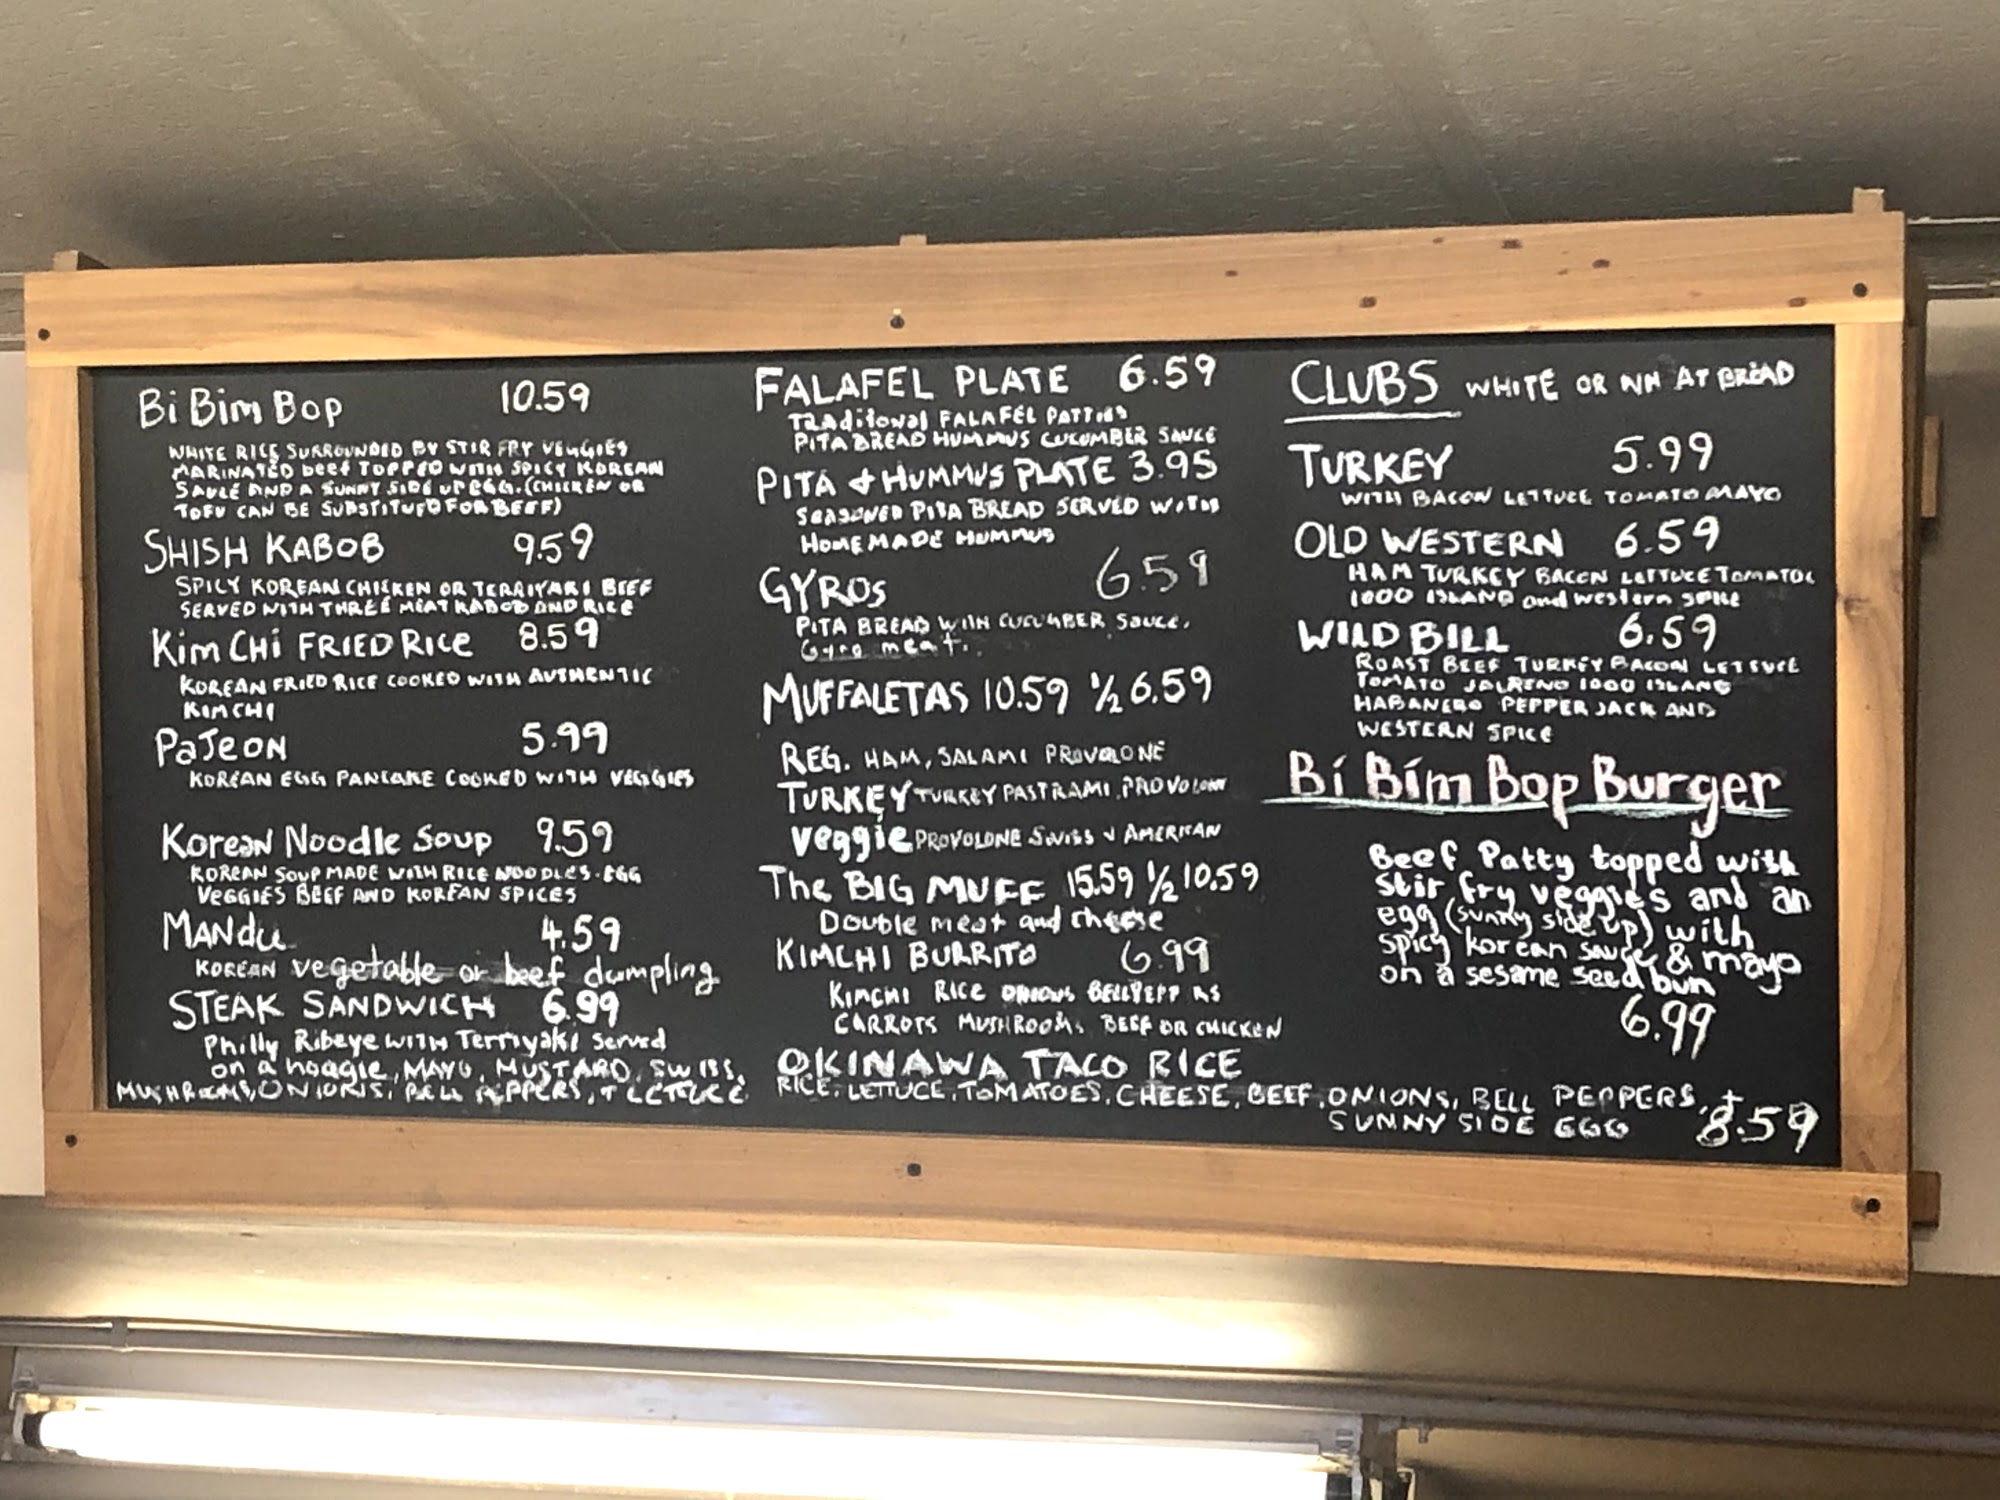 Bi Bim Bop 10.59
WHITE RICE SURROUNDED BY STIR FRY VEGGIES
MARINATED beef TOPPED WITH SPICY KOREAN
SAUCE AND A SUNNY SIDE UP EGG. (CHICKEN OR
TOFU CAN BE SUBSTITUED FOR BEEF)
SHISH KABOB 9.59
SPICY KOREAN CHICKEN OR TERRIYAKI BEEF
SERVED WITH THREE MEAT KABOB AND RICE
Kim CHi FRIED RiCE 8.59
KOREAN FRIED RICE COOKED WITH AUTHENTIC
KIMCHI
PaJeON 5.99
KOREAN EGG PANCAKE COOKED WITH VEGGIES
Korean Noodle Soup 9.59
KOREAN SOUP MADE WITH RICE NOODLES. EGG
VEGGIES BEEF AND KOREAN SPICES
MANdu 4.59
KOREAN vegetable or beef dumpling
STEAK SANDWICH 6.99
Philly Ribeye WITH Terriyaki Served
on a hoagie, MAYO, MUSTARD, SWISS,
MUSHROOMS, ONIONS, BELL PEPPERS, + LETTUCE
FALAFEL PLATE 6.59
TRADitional FALAFEL PATTIES
PITA BREAD HUMMUS CUCUMBER SAUCE
PITA + HUMMUS PLATE 3.95
SEASONED PITA BREAD SERVED WITH
HOMEMADE HUMMUS
GYROS 6.59
PITA BREAD WITH CUCUMBER SAUCE.
Gyro meat.
MUFFALETAS 10.59 ½ 6.59
REG. HAM, SALAMI PROVOLONE
TURKEY TURKEY PASTRAMI, PROVOLONE
veggie PROVOLONE SWISS + AMERICAN
The BIG MUFF 15.59 ½ 10.59
Double meat and cheese
KIMCHI BURRITO 6.99
KIMCHI RICE ONIONS BELLPEPPERS
CARROTS MUSHROOMS BEEF OR CHICKEN
OKINAWA TACO RICE
RICE, LETTUCE, TOMATOES, CHEESE, BEEF, ONIONS, BELL PEPPERS, +
SUNNY SIDE EGG 8.59
CLUBS WHITE OR WHEAT BREAD
TURKEY 5.99
WITH BACON LETTUCE TOMATO MAYO
OLD WESTERN 6.59
HAM TURKEY BACON LETTUCE TOMATOE
1000 ISLAND and western SPICE
WILD BILL 6.59
ROAST BEEF TURKEY BACON LETTUCE
TOMATO 1000 ISLAND
HABANERO PEPPER JACK AND
WESTERN SPICE
Bi Bim Bop Burger
Beef Patty topped with
stir fry veggies and an
egg (sunny side up) with
spicy korean sauce & mayo
on a sesame seed bun
6.99